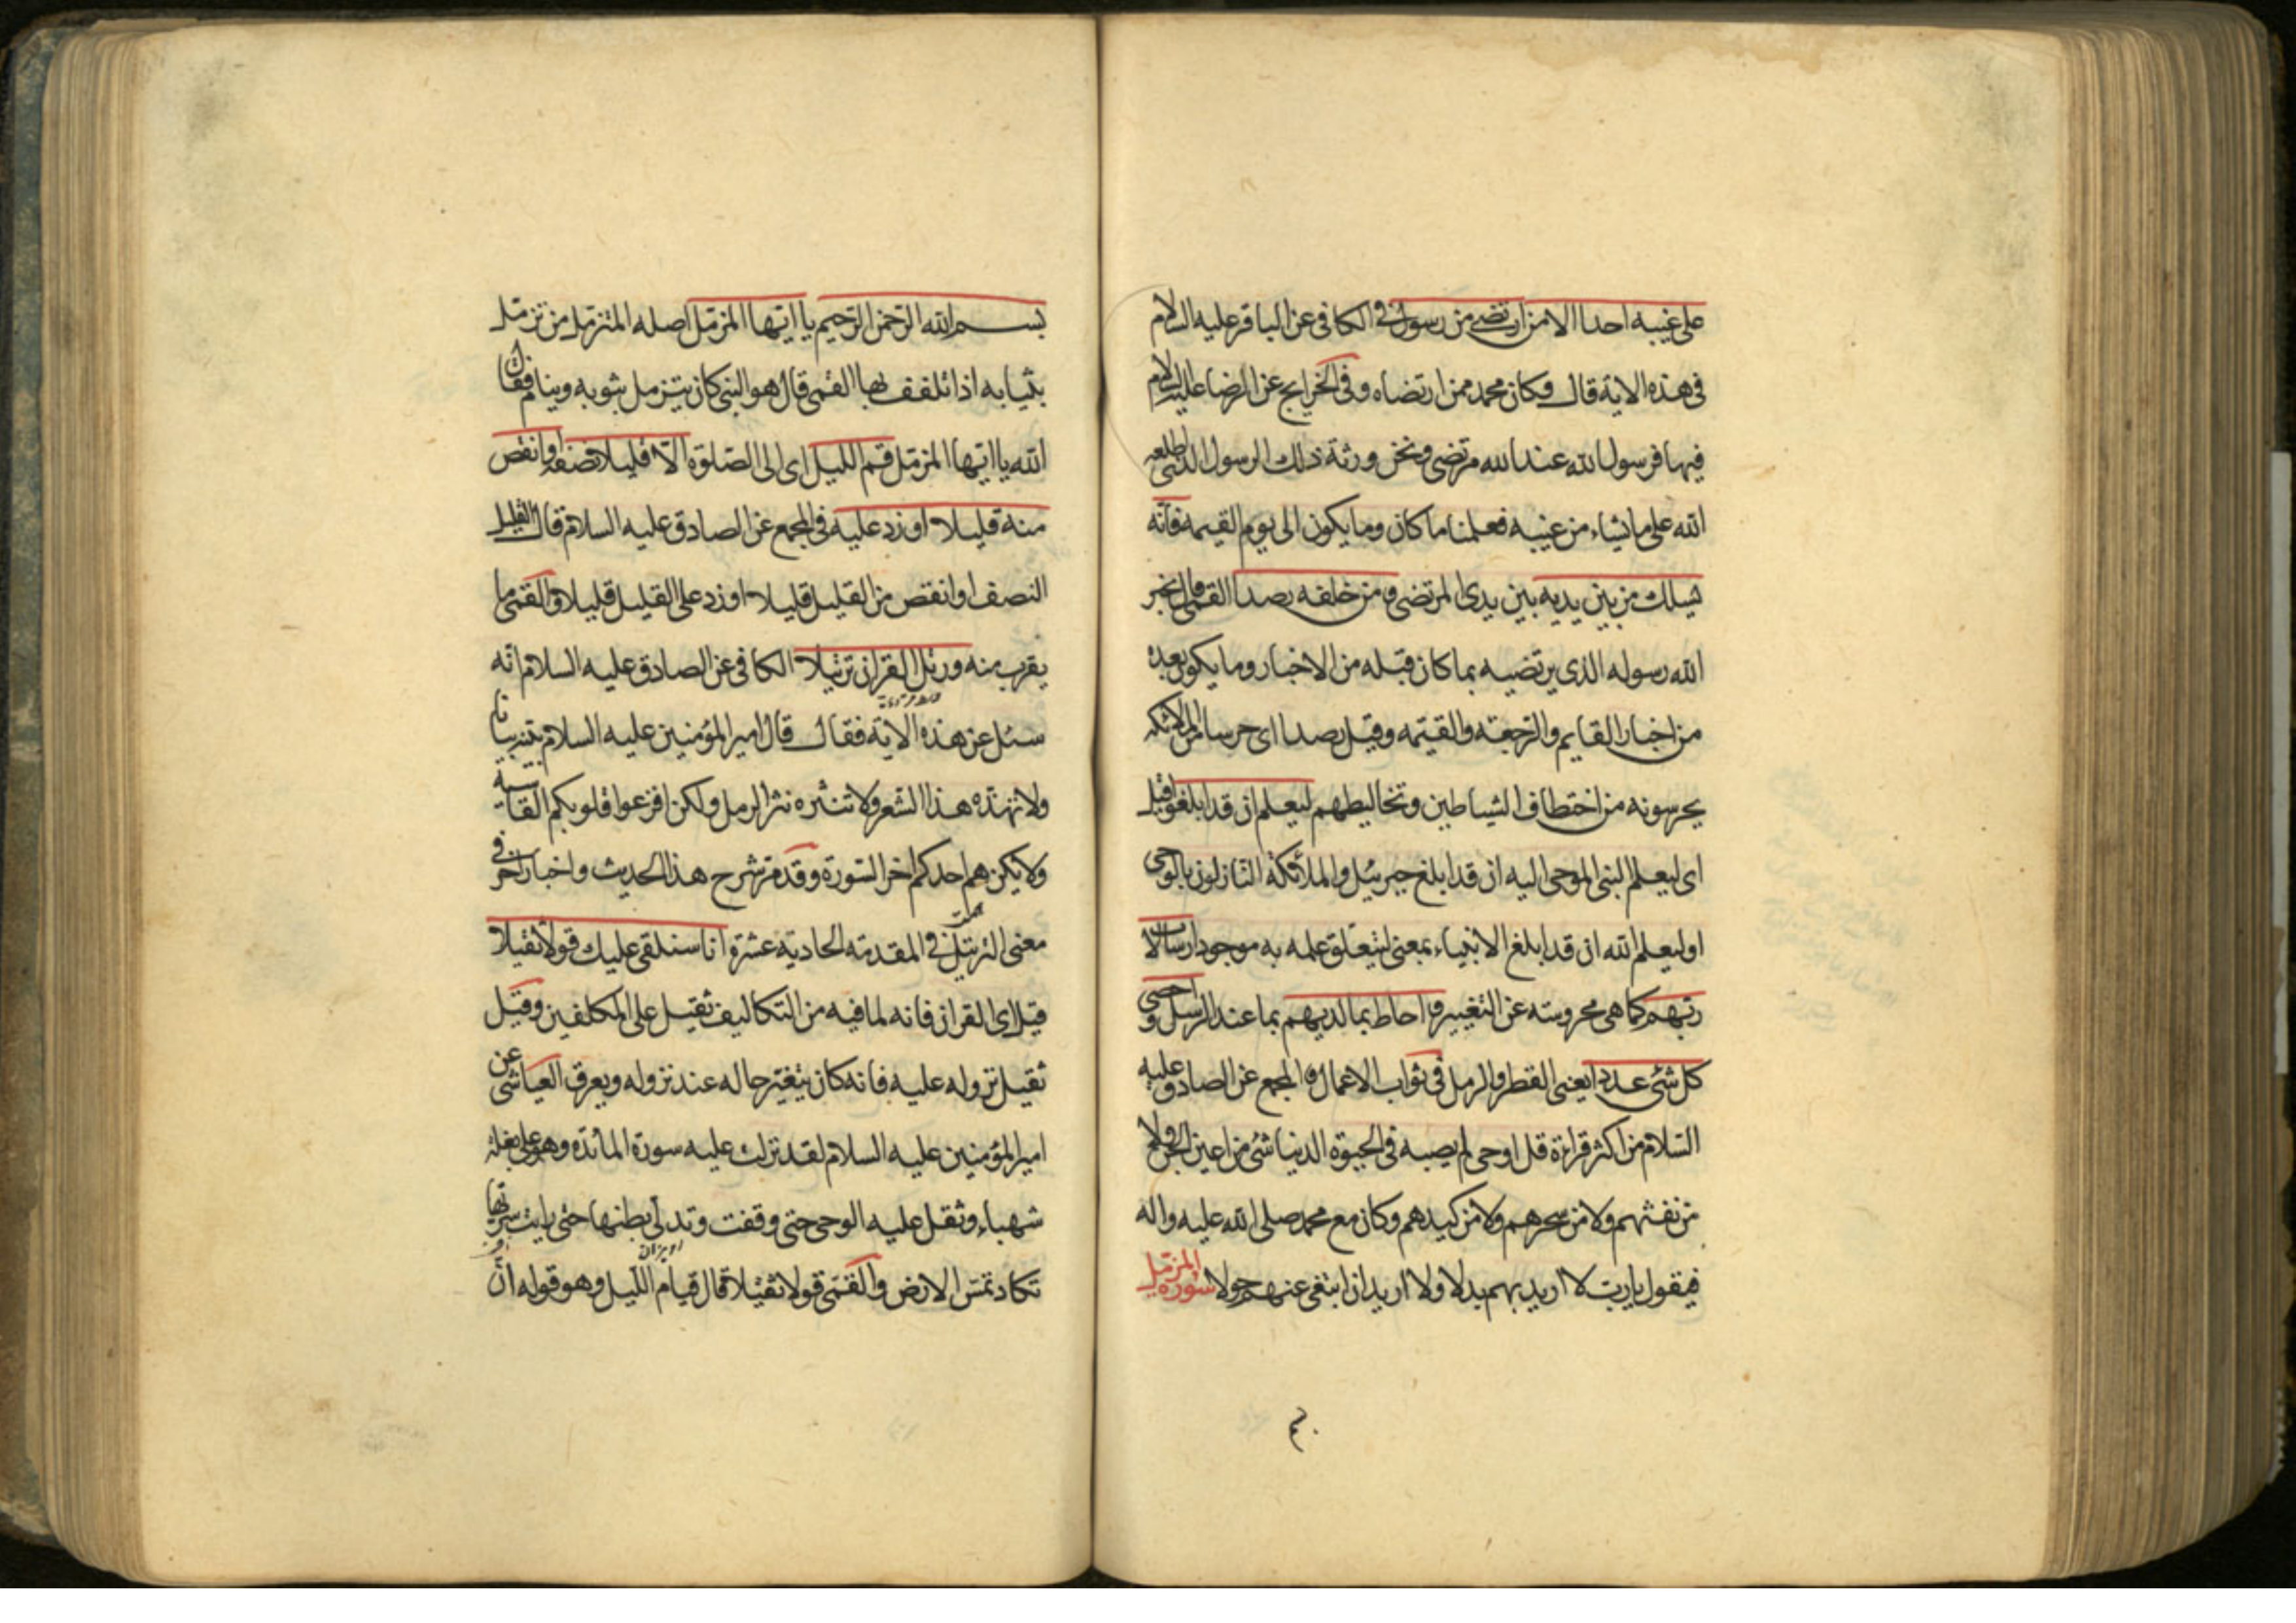 على غيبه احدا الا من ارتضى من رسول في الكافى عن الباقر عليه السلام
فى هذه الاية قال وكان محمد ممن ارتضاه وفى الخرايج عن الرضا عليه السلام
فيها فرسول الله عند الله مرتضى ونحن ورثة ذلك الرسول الذى اطلعه
الله على ما يشاء من غيبه فعلمنا ما كان وما يكون الى يوم القيمه فانه
يسلك من بين يديه بين يدى المرتضى ومن خلفه رصدا القمى قال يخبر
الله رسوله الذى يرتضيه بما كان قبله من الاخبار وما يكون بعده
من اخبار القايم والرجعة والقيمه وقيل رصدا اى حرسا من الملائكه
يحرسونه من اختطاف الشياطين وتخاليطهم ليعلم ان قد ابلغوا قيل
اى ليعلم النبى الموحى اليه ان قد ابلغ جبرئيل والملائكة النازلون بالوحى
او ليعلم الله ان قد ابلغ الانبياء بمعنى ليتعلق علمه به موجودا رسالات
ربهم كما هى محروسته عن التغيير واحاط بما لديهم بما عند الرسل واحصى
كل شئ عددا يعنى القطر والرمل فى ثواب الاعمال والمجمع عن الصادق عليه
السلام من اكثر قراءة قل اوحى لم يصبه فى الحيوة الدنيا شئ من اعين الجن ولا
من نفثهم ولا من سحرهم ولا من كيدهم وكان مع محمد صلى الله عليه واله
فيقول يا رب لا اريد بهم بدلا ولا اريد ان ابتغى عنهم حولا سورة المزمل
بسم الله الرحمن الرحيم يا ايها المزمل اصله المتزمل من تزمل
بثيابه اذا تلفف بها القمى قال هو النبى كان يتزمل بثوبه وينام فقال
الله يا ايها المزمل قم الليل اى الى الصلوة الا قليلا نصفه او انقص
منه قليلا او زد عليه فى المجمع عن الصادق عليه السلام قال القليل
النصف او انقص من القليل قليلا او زد على القليل قليلا والقمى ما
يقرب منه ورتل القران ترتيلا الكافى عن الصادق عليه السلام انه
سئل عن هذه الاية فقال قال امير المؤمنين عليه السلام بينه بيانا
ولا تهذه هذا الشعر ولا تنثره نثر الرمل ولكن افزعوا قلوبكم القاسية
ولا يكن هم احدكم اخر السورة وقد مر شرح هذا الحديث واخبار اخر فى
معنى الترتيل فى المقدمة الحادية عشرة انا سنلقى عليك قولا ثقيلا
قيل اى القران فانه لما فيه من التكاليف ثقيل على المكلفين وقيل
ثقيل نزوله عليه فانه كان يتغير حاله عند نزوله ويعرق العياشى عن
امير المؤمنين عليه السلام لقد نزلت عليه سورة المائدة وهو على بغلة
شهباء وثقل عليه الوحى حتى وقفت وتدلى بطنها حتى رايت سرتها
تكاد تمس الارض والقمى قولا ثقيلا قال قيام الليل وهو قوله ان